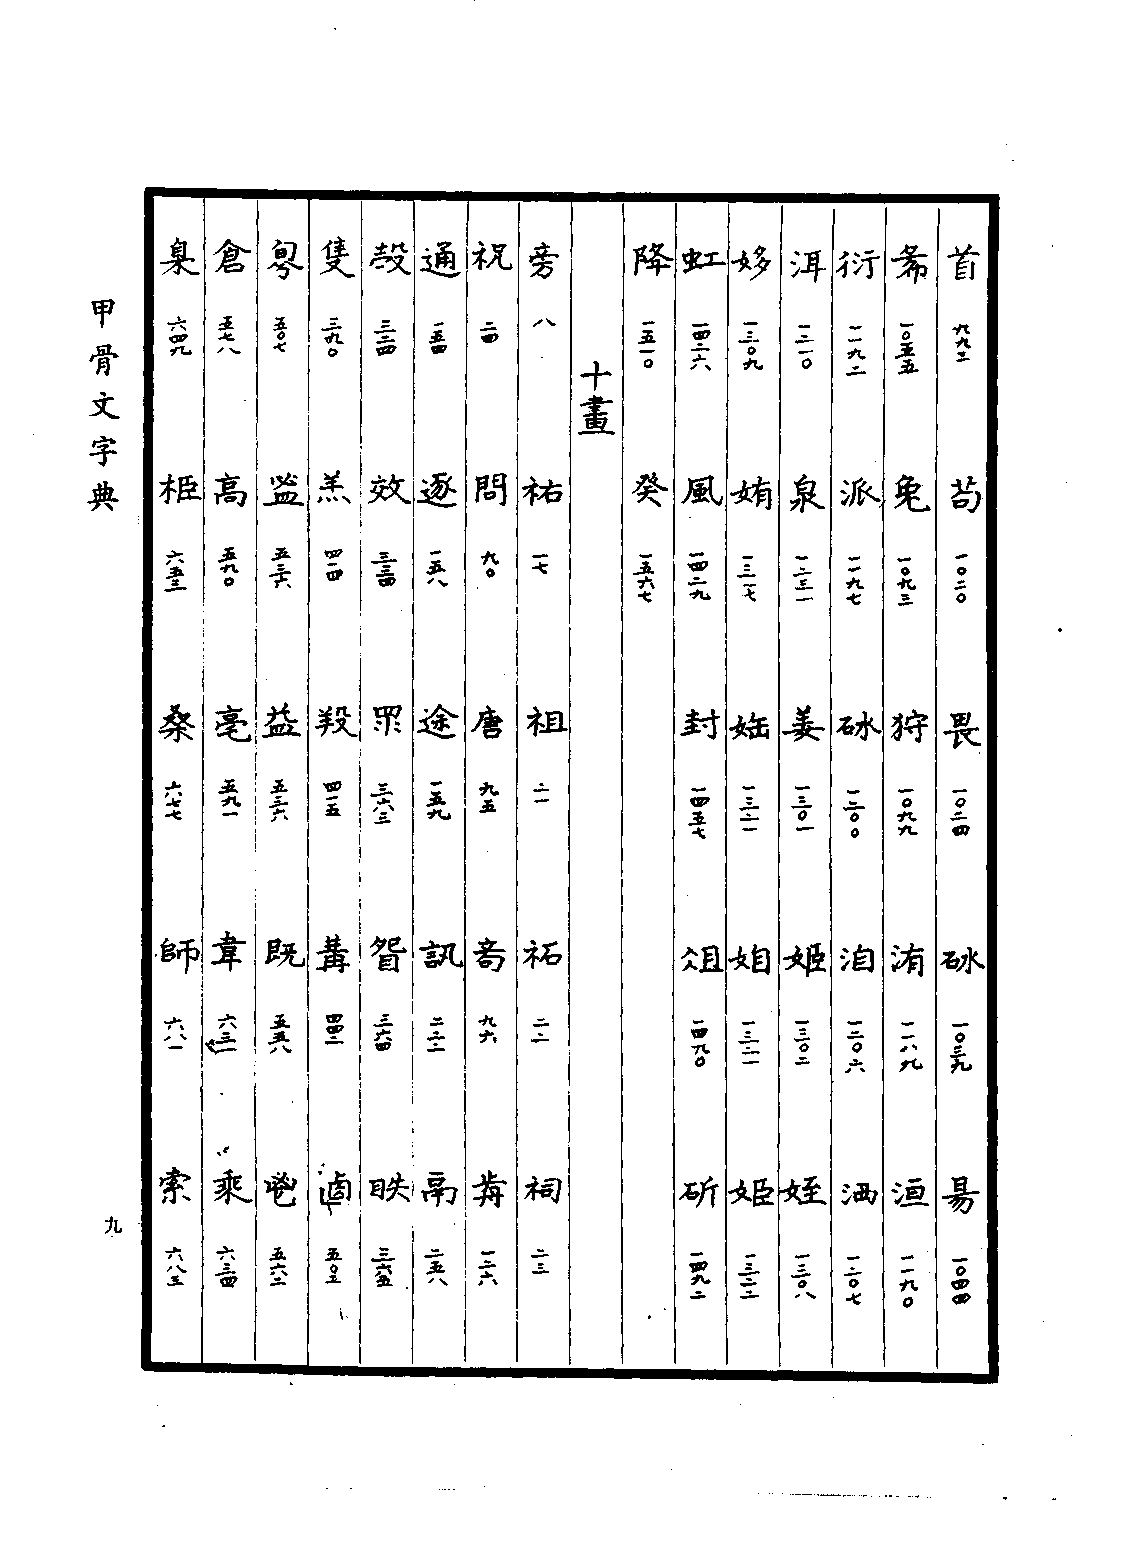 首 九九二 苟 一〇二〇 畏 一〇二四 砅 一〇三九 昜 一〇四四
㣇 一〇五五 兔 一〇九三 狩 一〇九九 洧 一一八九 洹 一一九〇
衍 一一九二 派 一一九七 砅 一二〇〇 洎 一二〇六 洒 一二〇七
洱 一二一〇 泉 一二三一 姜 一三〇一 姬 一三〇二 姪 一三〇八
姼 一三〇九 姷 一三一七 一三二一 一三二一 姬 一三二二
虹 一四二六 風 一四二九 封 一四五七 俎 一四九〇 斫 一四九二
降 一五一〇 癸 一五六七
十畫
旁 八 祐 一七 祖 二一 祏 二二 祠 二三
祝 二四 問 九〇 唐 九五 九六 一二六
通 一五四 逐 一五八 途 一五九 訊 二二二 鬲 二五八
㱿 三二四 效 三三四 眔 三六三 眢 三六四 眣 三六五
隻 三九〇 羔 四一四 羖 四一五 冓 四四二 五〇五
五〇七 五三六 益 五三六 既 五五八 鬯 五六二
倉 五七八 高 五九〇 亳 五九一 韋 六三一 乘 六三四
臬 六四九 六五三 桑 六七七 師 六八一 索 六八三
甲骨文字典
九